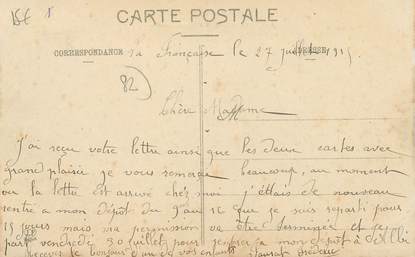 15€ 1
CARTE POSTALE
CORRESPONDANCE
ADRESSE
la Française le 27 juillet 1915
82
Chère Madame
J'ai reçu votre lettre ainsi que les deux cartes avec
grand plaisir je vous remercie beaucoup, au moment
ou la lettre est arrivé chez moi j'étais de nouveau
rentré a mon dépôt du 9 ce que je suis reparti pour
15 jours mais ma permission va être terminée et je
part vendredi 30 juillet pour rentrer a mon dépôt à
recevez le bonjour d'un de vos enfants